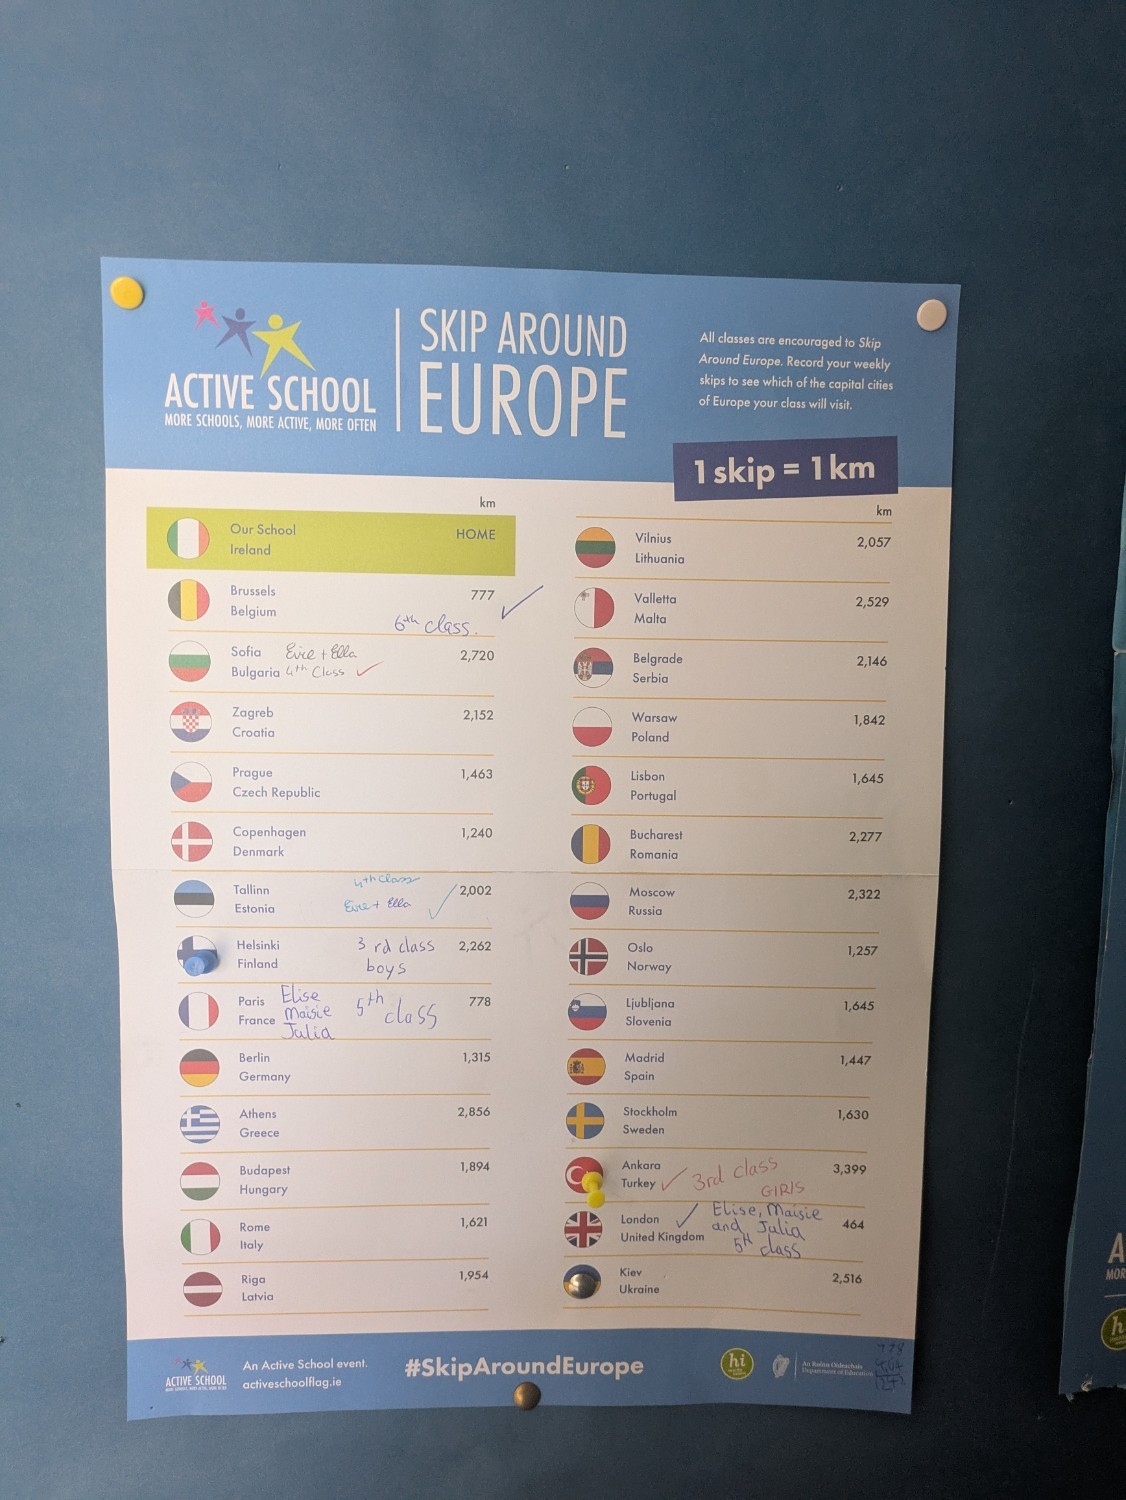 ACTIVE SCHOOL
MORE SCHOOLS, MORE ACTIVE, MORE OFTEN
SKIP AROUND
EUROPE
All classes are encouraged to Skip
Around Europe. Record your weekly
skips to see which of the capital cities
of Europe your class will visit.
1 skip = 1km
km
Our School HOME
Ireland
Brussels 777
Belgium 6th class.
Sofia Evie + Ella 2,720
Bulgaria 4th Class
Zagreb 2,152
Croatia
Prague 1,463
Czech Republic
Copenhagen 1,240
Denmark
4th Class
Tallinn 2,002
Estonia Evie + Ella
Helsinki 3rd class 2,262
Finland boys
Paris Elise 5th class 778
France Maisie
Julia
Berlin 1,315
Germany
Athens 2,856
Greece
Budapest 1,894
Hungary
Rome 1,621
Italy
Riga 1,954
Latvia
km
Vilnius 2,057
Lithuania
Valletta 2,529
Malta
Belgrade 2,146
Serbia
Warsaw 1,842
Poland
Lisbon 1,645
Portugal
Bucharest 2,277
Romania
Moscow 2,322
Russia
Oslo 1,257
Norway
Ljubljana 1,645
Slovenia
Madrid 1,447
Spain
Stockholm 1,630
Sweden
Ankara 3rd class 3,399
Turkey GIRlS
London Elise, Maisie 464
United Kingdom and Julia
5th class
Kiev 2,516
Ukraine
ACTIVE SCHOOL
MORE SCHOOLS, MORE ACTIVE, MORE OFTEN
An Active School event.
activeschoolflag.ie
#SkipAroundEurope
hi
An Roinn Oideachais
Department of Education